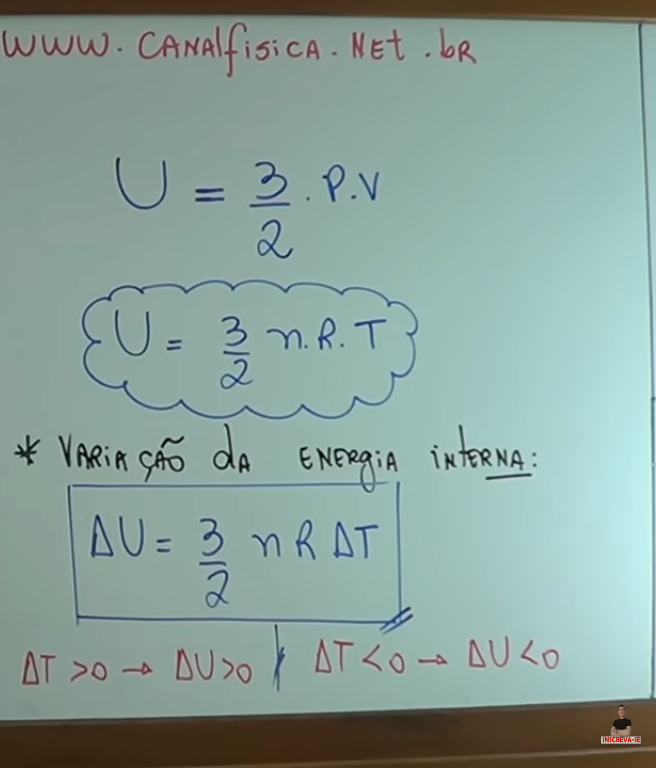 WWW.CANALfisiCA.NEt.bR
U = 3/2 . P.V
U = 3/2 n.R.T
* VARIAÇÃO dA ENERgiA iNtERNA:
ΔU = 3/2 n R ΔT
ΔT >0 → ΔU>0 / ΔT <0 → ΔU <0
INSCREVA-SE